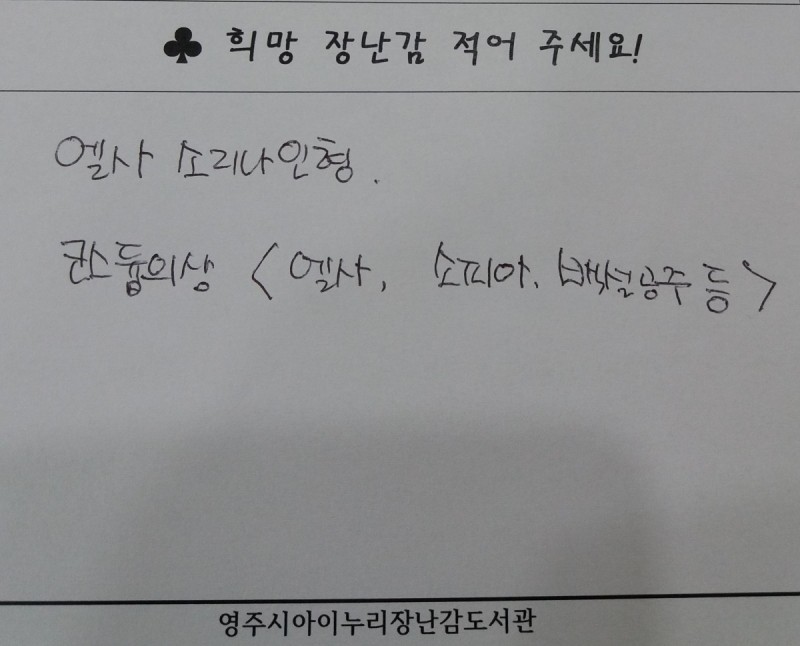 ♣ 희망 장난감 적어 주세요!
엘사 소리나인형.
콘스듐의상 <엘사, 소피아, 백설공주 등>
영주시아이누리장난감도서관